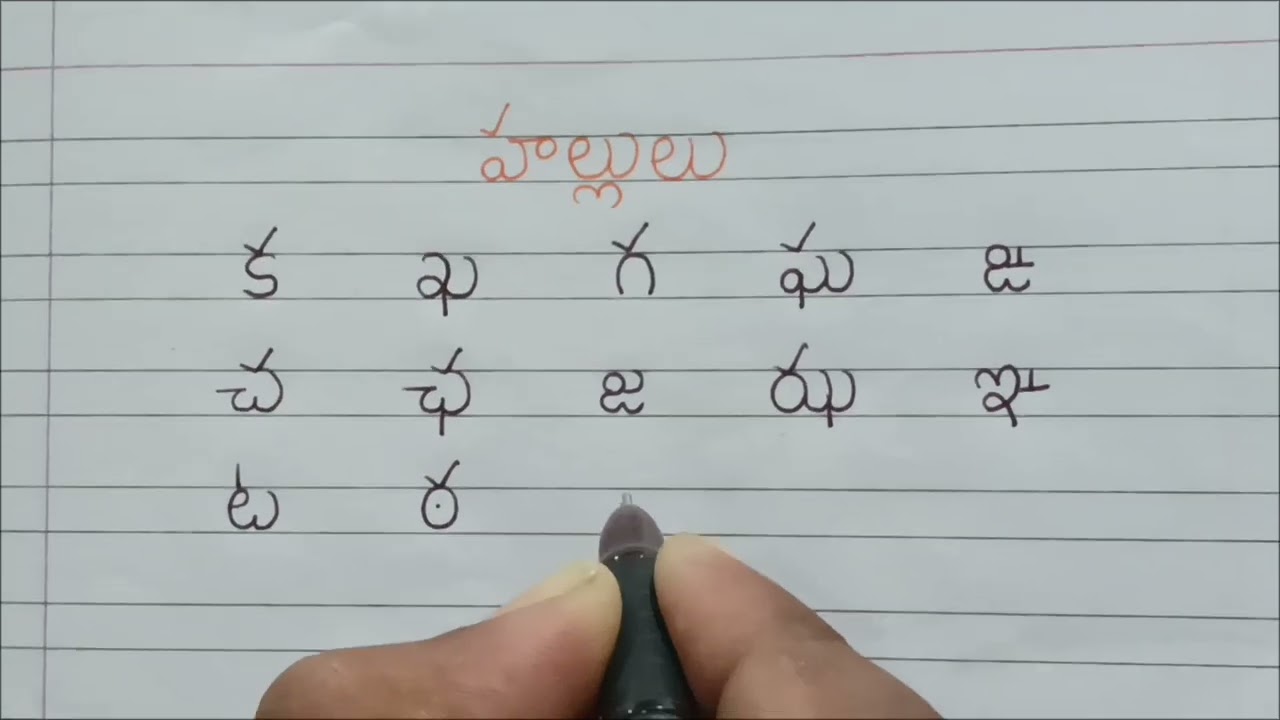 హల్లులు
క ఖ గ ఘ ఙ
చ ఛ జ ఝ ఞ
ట ఠ